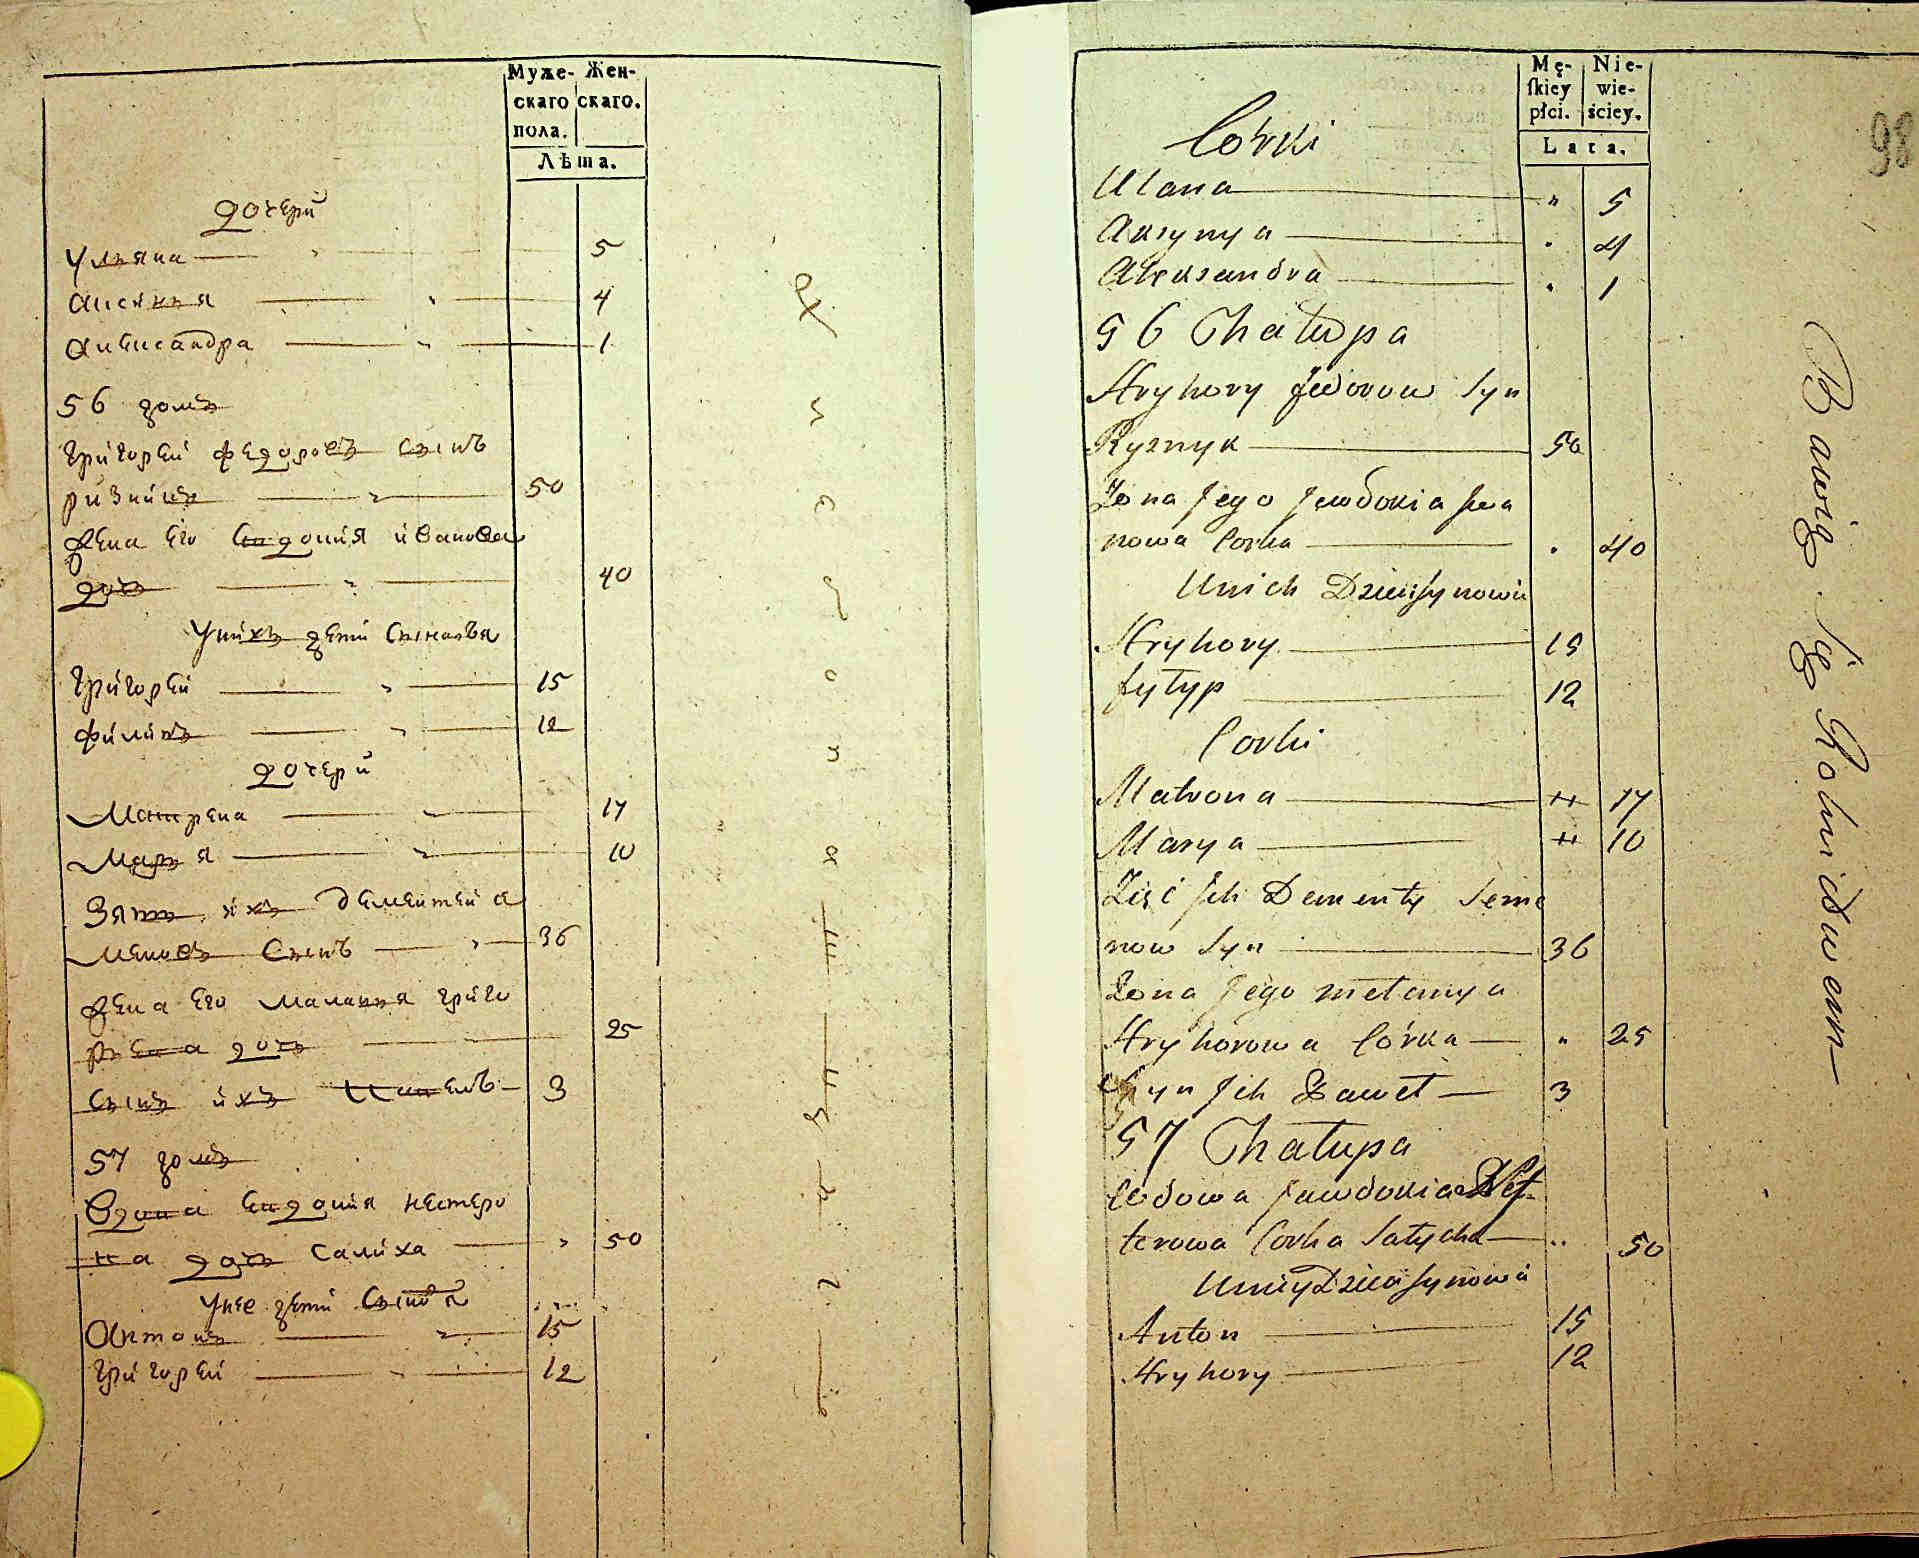 Муже- Жен-
скаго скаго.
пола.
Лѣта.
дочери
Ульяна 5
Аксиния 4
Александра 1
56 домъ
Григорей Федоровъ сынъ
Ризникъ 50
Жена Его Евдокия Иванова
дочь 40
У нихъ дети Сыновья
Григорей 15
Филипъ 12
дочери
Матрена 17
Марья 10
Зять ихъ Дементей Се
меновъ Сынъ 36
Жена Его Маланья Григо
рьева дочь 25
Сынъ ихъ Павелъ 3
57 домъ
Вдова Евдокия Нестеро
ва дочь Салиха 50
У нее дети Сыновья
Антонъ 15
Григорей 12
Mę- Nie-
skiey wie-
płci. ściey.
Lata.
98
Córki
Ulana " 5
Aksynya " 4
Aleksandra " 1
56 Chałupa
Hryhory Fedorow Syn
Ryznyk 50
Żona Jego Jewdokia Iwa
nowa Corka " 40
U nich Dzieci Synowie
Hryhory 15
Fyłyp 12
Corki
Matrona " 17
Marya " 10
Zięć Ich Dementy Seme
now Syn 36
Żona Jego Mełanya
Hryhorowa Córka " 25
Syn Ich Paweł 3
57 Chałupa
Wdowa Jewdokia Nes-
terowa Corka Sałycha " 50
U niey Dzieci Synowie
Anton 15
Hryhory 12
Bawią Się Rolnictwem